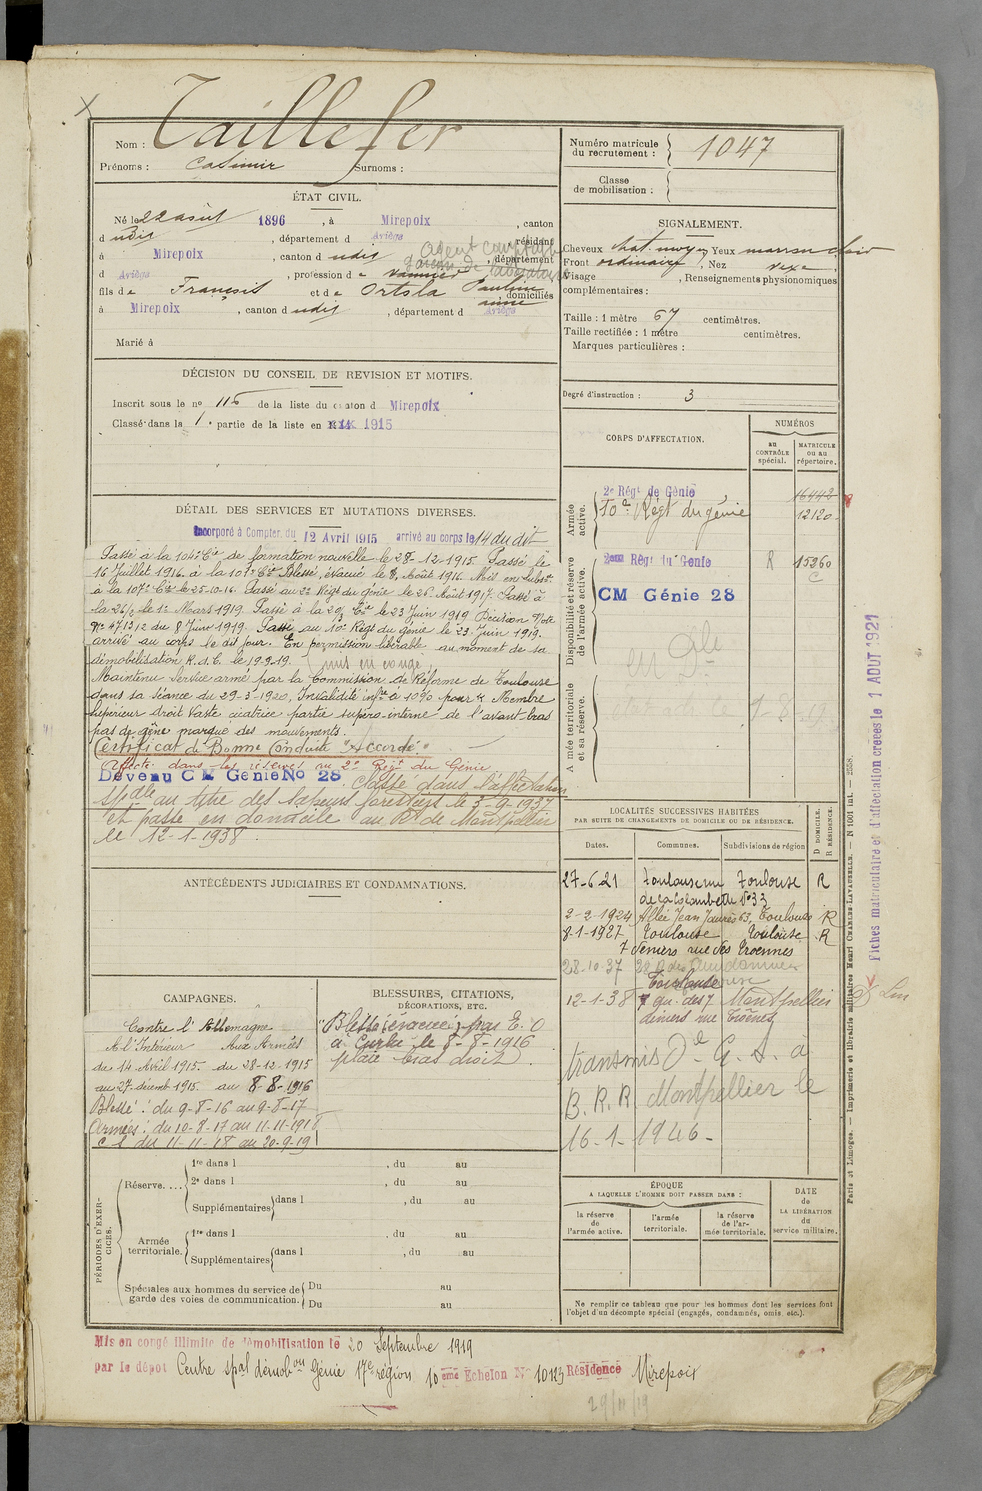 Taillefer
Nom :
Prénoms : Casimir Surnoms :
Numéro matricule du recrutement : 1047
Classe de mobilisation :
ÉTAT CIVIL.
Né le 22 août 1896, à Mirepoix, canton
d udit, département d Ariège, résidant
à Mirepoix, canton d udit, département
d Ariège, profession de vannier
agent comptable
garçon de laboratoire
fils de François et de Ortola Pauline anne domiciliés
à Mirepoix, canton d udit, département d Ariège
Marié à
SIGNALEMENT.
Cheveux chat. moyen Yeux marron clair
Front ordinaire, Nez vexe
Visage , Renseignements physionomiques
complémentaires :
Taille : 1 mètre 67 centimètres.
Taille rectifiée : 1 mètre centimètres.
Marques particulières :
Degré d'instruction : 3
DÉCISION DU CONSEIL DE REVISION ET MOTIFS.
Inscrit sous le no 116 de la liste du canton d Mirepoix
Classé dans la 1. partie de la liste en 1915
CORPS D'AFFECTATION.
NUMÉROS
au CONTRÔLE spécial.
MATRICULE ou au répertoire.
Armée active.
2e Régt de Génie 16448
10e Régt du génie 12120
Disponibilité et réserve de l'armée active.
2eme Régt du Genie R 15960
CM Génie 28
Armée territoriale et sa réserve.
DÉTAIL DES SERVICES ET MUTATIONS DIVERSES.
Incorporé à Compter du 12 Avril 1915 arrivé au corps le 14 du dit
Passé à la 104e Cie de formation nouvelle le 28-12-1915. Passé le
16 Juillet 1916 à la 101e Cie Blessé, évacué le 8 Août 1916. Mis en subsce
à la 107e Cie le 25-10-16. Passé au 2e Régt du génie le 26 Août 1917. Passé à
la 26/2 le 1er Mars 1919. Passé à la 20/ Cie le 23 Juin 1919 Décision Note
No 47.131 2 du 8 Juin 1919. Passé au 10e Régt du génie le 23 Juin 1919.
arrivé au corps le dit jour. En permission libérable au moment de sa
démobilisation R.d.C. le 19.9.19. (mis en congé)
Maintenu Service armé par la Commission de Réforme de Toulouse
dans sa séance du 29-3-1920. Invalidité infre à 10% pour "Membre
supérieur droit vaste cicatrice partie supero-interne de l'avant bras
pas de gêne marquée des mouvements.
Certificat de Bonne Conduite "Accordé"
Affecté dans les réserves au 2e Régt du Génie
Devenu CM Génie No 28. Classé dans l'affectation
spale au titre des sapeurs forestiers le 3-9-1937
et passé en domicile au Rt de Montpellier
le 12-1-1938.
LOCALITÉS SUCCESSIVES HABITÉES
PAR SUITE DE CHANGEMENTS DE DOMICILE OU DE RÉSIDENCE.
Dates. Communes. Subdivisions de région
D DOMICILE.
R RÉSIDENCE.
27-6-21 Toulouse rue Toulouse R
de la Colombette No 33
2-2-1924 Allée Jean Jaurès 63, Toulouse R
8-1-1927 Toulouse Toulouse R
7 deniers rue des Troennes
28-10-37
Toulouse
12-1-38 qu. des 7 Montpellier
deniers rue
transmis Dle G.S. à
B.R.R Montpellier le
16-1-1946-
ANTÉCÉDENTS JUDICIAIRES ET CONDAMNATIONS.
CAMPAGNES.
Contre l'Allemagne
A l'Intérieur Aux Armées
du 14 Avril 1915. du 28-12-1915
au 27 décemb 1915. au 8-8-1916
Blessé : du 9-8-16 au 9-8-17
Armées : du 10-8-17 au 11-11-1918
C S du 11-11-18 au 20-9-19
BLESSURES, CITATIONS,
DÉCORATIONS, ETC.
"Blessé (évacué) par E.O
à Curlu le 8-8-1916
plaie bras droit.
PÉRIODES D'EXERCICES.
Réserve.... 1re dans l , du au
2e dans l , du au
Supplémentaires dans l , du au
Armée territoriale. 1re dans l , du au
Supplémentaires dans l , du au
Spéciales aux hommes du service de garde des voies de communication. Du au
Du au
ÉPOQUE
A LAQUELLE L'HOMME DOIT PASSER DANS :
la réserve de l'armée active.
l'armée territoriale.
la réserve de l'armée territoriale.
DATE de LA LIBÉRATION du service militaire.
Ne remplir ce tableau que pour les hommes dont les services font
l'objet d'un décompte spécial (engagés, condamnés, omis, etc.).
Mis en congé illimité de démobilisation le 20 Septembre 1919
par le dépôt Centre spal démobon Génie 17e région 10 eme Echelon No 10123 Résidence Mirepoix
29/11/19
Fiches matriculaire et d'affectation créées le 1 AOUT 1921
Paris et Limoges. — Imprimerie et librairie militaires Henri CHARLES-LAVAUZELLE. — N 1001 int. — 2558.